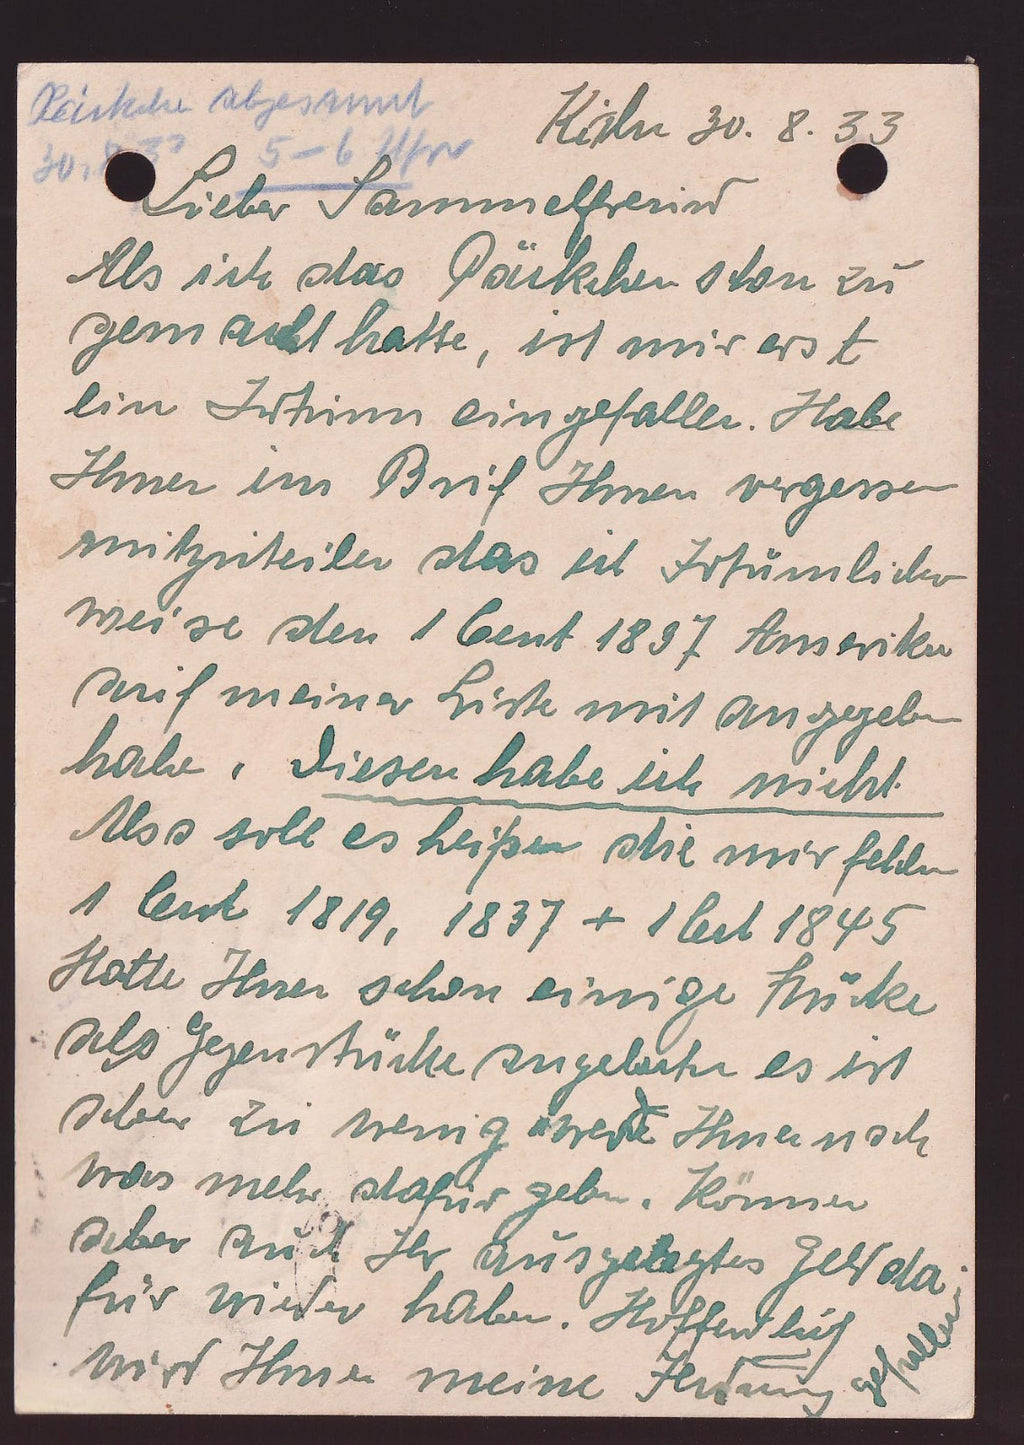 Päckchen abgesannt
30. 8. 33 5 – 6 Uhr
Köln 30. 8. 33
Lieber Sammelfreund
Als ich das Päckchen schon zu
gemacht hatte, ist mir erst
ein Irtum eingefallen. Habe
Ihnen im Brif Ihnen vergessen
mitzuteilen das ich Irtümlicher
weise den 1 Cent 1897 Amerika
auf meiner Liste mit angegeben
habe. Diesen habe ich nicht.
Also soll es heißen die mir fehlen
1 Cent 1819, 1837 + 1 Cent 1845
Hatte Ihnen schon einige Stücke
als Gegenstücke angeboten es ist
aber zu wenig werde Ihnen noch
was mehr dafür geben. Können
aber auch Ihr ausgelegtes Geld da-
für wieder haben. Hoffentlich
wird Ihnen meine Sendung gefallen